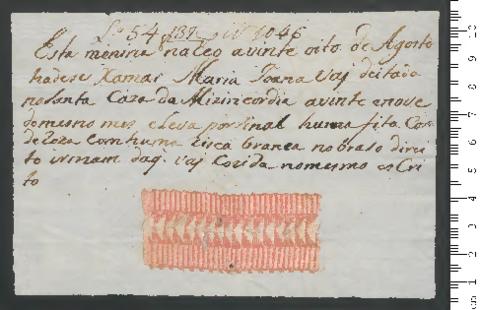 Lº 54 f 132 Nº 1046
Esta menina naceo avinte oito de Agosto
hadese Xamar Maria Joana Vaj deitada
nasanta Caza da Mizericordia avinte enove
domesmo mes eleva porsinal huma fita Cor
deRoza Comhuma risca branca nobraso direi
to irmam daq. vaj Cozida nomesmo esCri
to